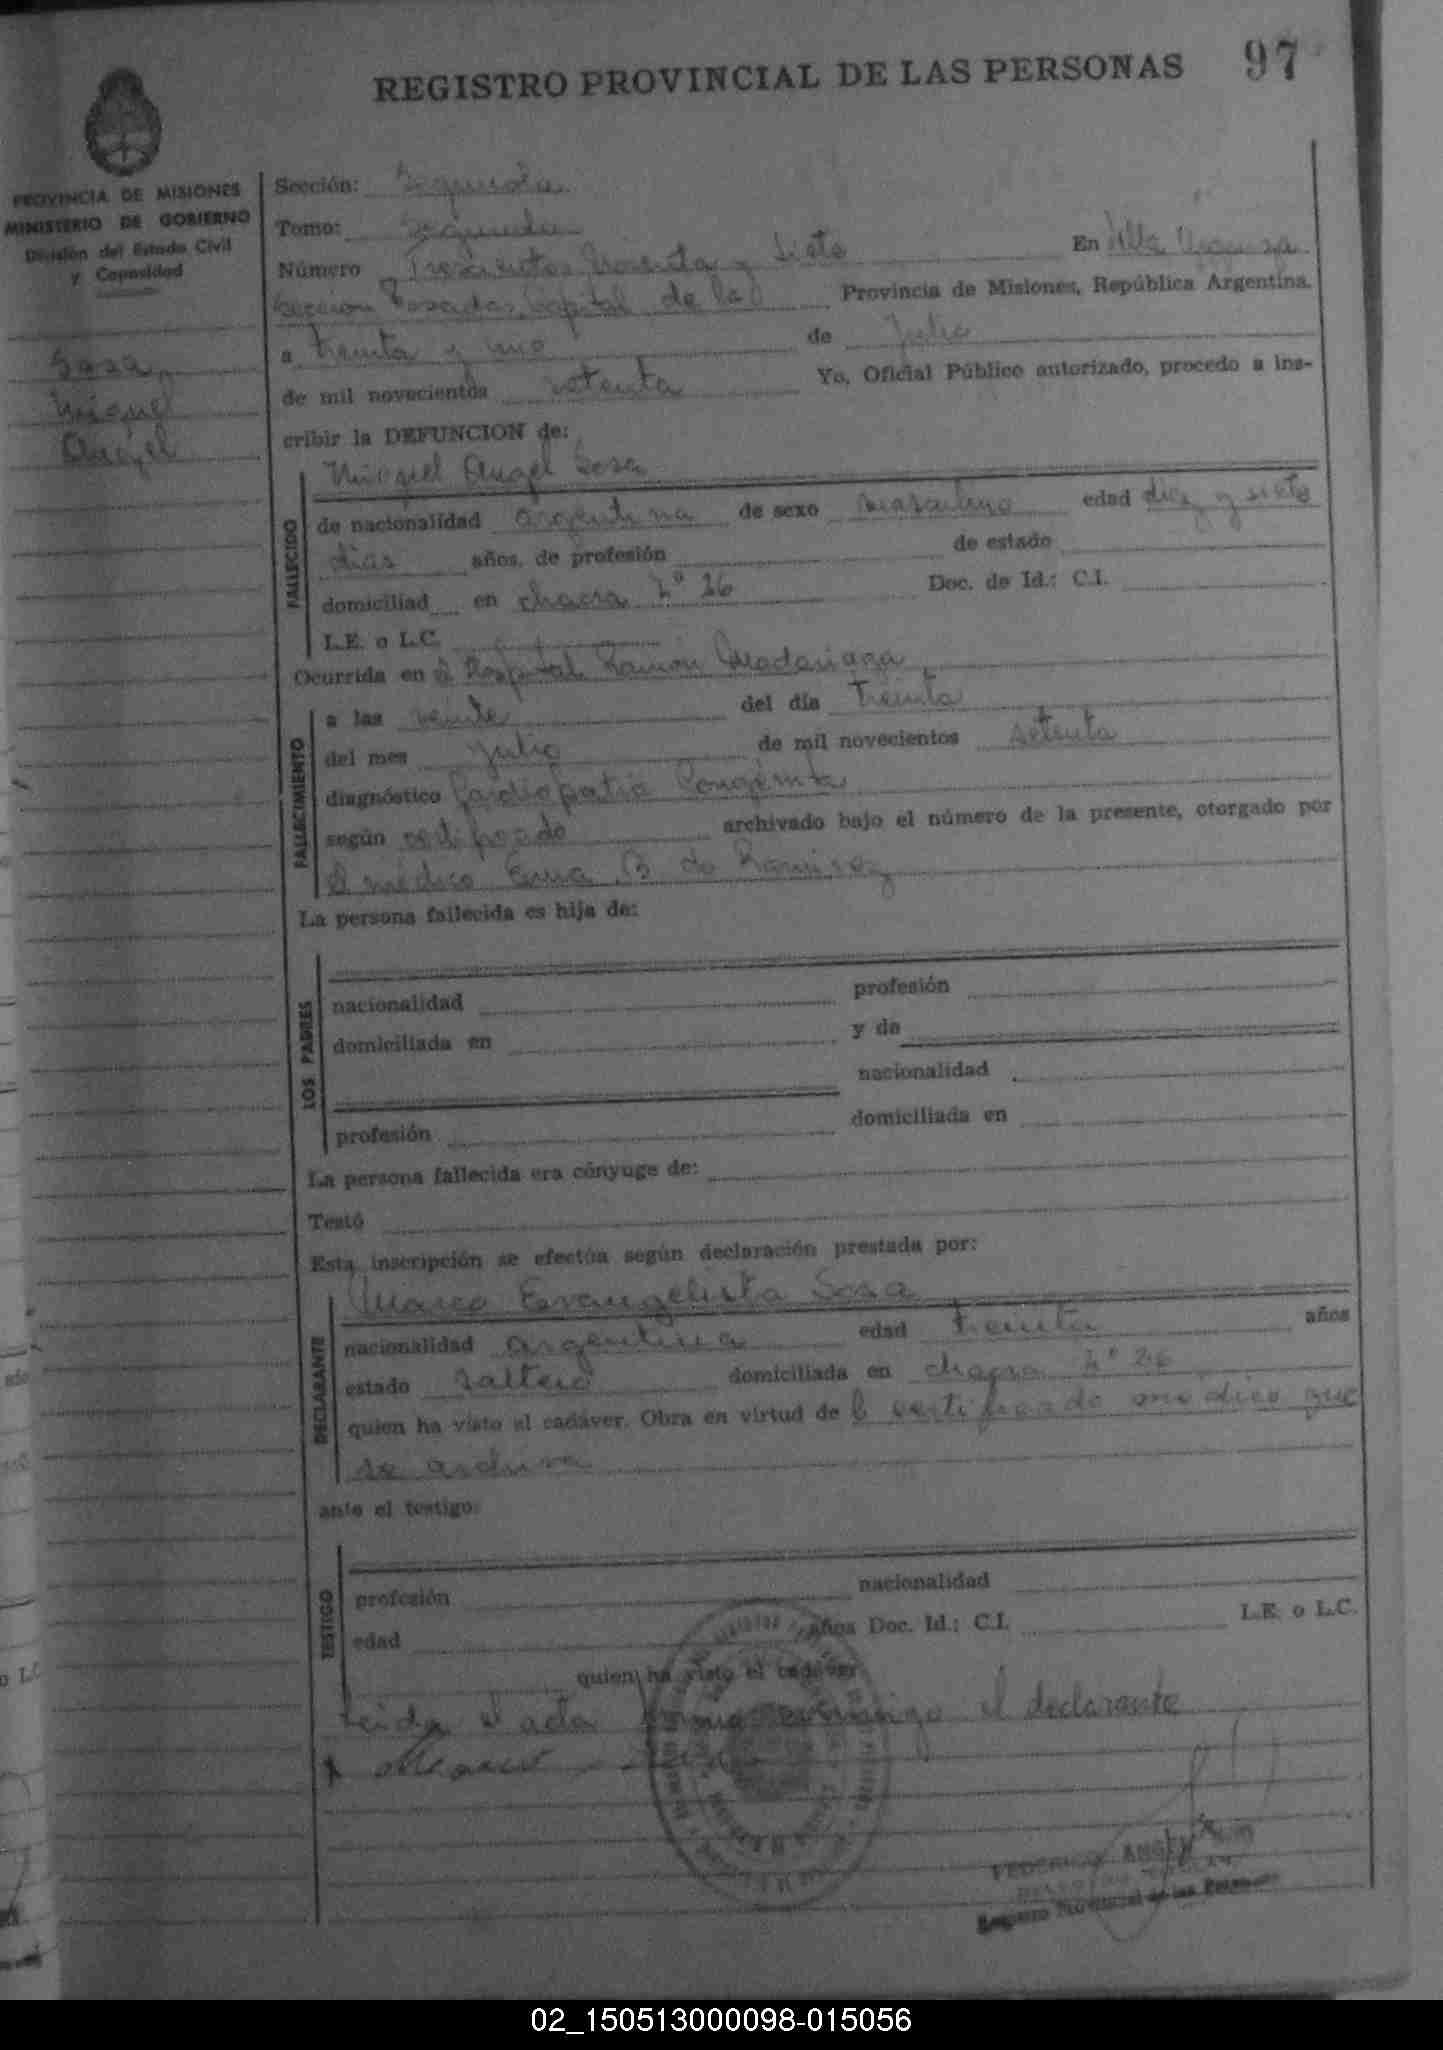 REGISTRO PROVINCIAL DE LAS PERSONAS 97
PROVINCIA DE MISIONES
MINISTERIO DE GOBIERNO
División del Estado Civil
y Capacidad
Sosa
Miguel
Angel
Sección: Segunda
Tomo: Segundo
Número Trescientos Noventa y Siete En Villa Urquiza
Sección Posadas, Capital de la Provincia de Misiones, República Argentina.
a treinta y uno de Julio
de mil novecientos setenta Yo, Oficial Público autorizado, procedo a ins-
cribir la DEFUNCION de:
Miguel Angel Sosa
FALLECIDO
de nacionalidad argentina de sexo masculino edad diez y siete
dias años, de profesión de estado
domiciliad en chacra Nº 26 Doc. de Id.: C.I.
L.E. o L.C.
Ocurrida en el Hospital Ramón Madariaga
FALLECIMIENTO
a las veinte del día treinta
del mes Julio de mil novecientos setenta
diagnóstico Cardiopatia Congénita
según certificado archivado bajo el número de la presente, otorgado por
el médico Ema B de Ramirez
La persona fallecida es hija de:
LOS PADRES
nacionalidad profesión
domiciliada en y de
nacionalidad
profesión domiciliada en
La persona fallecida era cónyuge de:
Testó
Esta inscripción se efectúa según declaración prestada por:
Marco Evangelista Sosa
DECLARANTE
nacionalidad argentina edad treinta años
estado soltero domiciliada en chacra Nº 26
quien ha visto al cadáver. Obra en virtud de l certificado médico que
se archiva
ante el testigo:
TESTIGO
profesión nacionalidad
edad años Doc. Id.: C.I. L.E. o L.C.
quien ha visto el cadáver
Leida el acta firma conmigo el declarante
FEDERICO
Registro Provincial de las Personas
02_150513000098-015056